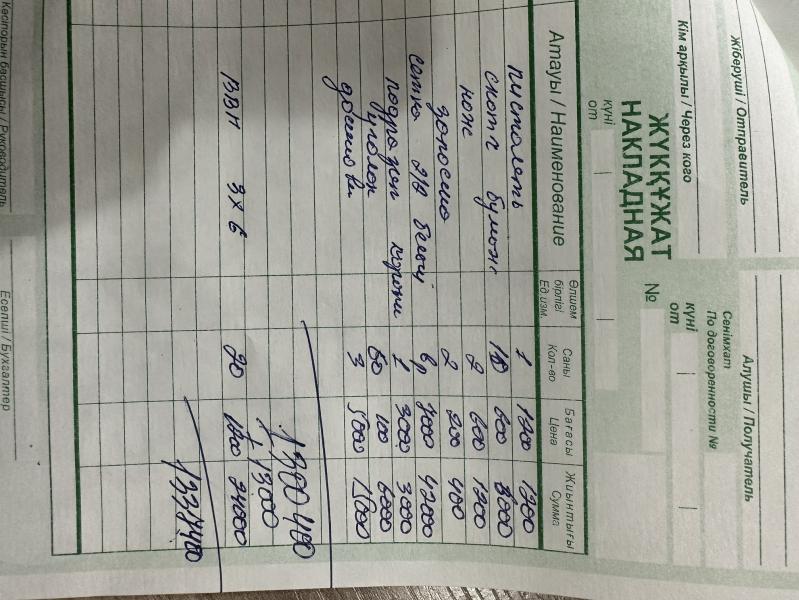 Жіберуші / Отправитель
Алушы / Получатель
Кім арқылы / Через кого
Сенімхат
По договоренности №
күні
от
ЖҮКҚҰЖАТ
НАКЛАДНАЯ
№
күні
от
Атауы / Наименование
Өлшем бірлігі Ед.изм.
Саны Кол-во
Бағасы Цена
Жиынтығы Сумма
пистолеть 1 1200 1200
скотч бумож 10 600 6000
нож 2 600 1200
2 200 400
сетка белый 7000 42000
1 3000 3000
уголок 60 100 6000
3 5000 15000
1300 400
+ 13000
ВВГ 3х6 20 1200 24000
Кәсіпорын басшысы / Руководитель
Есепші / Бухгалтер